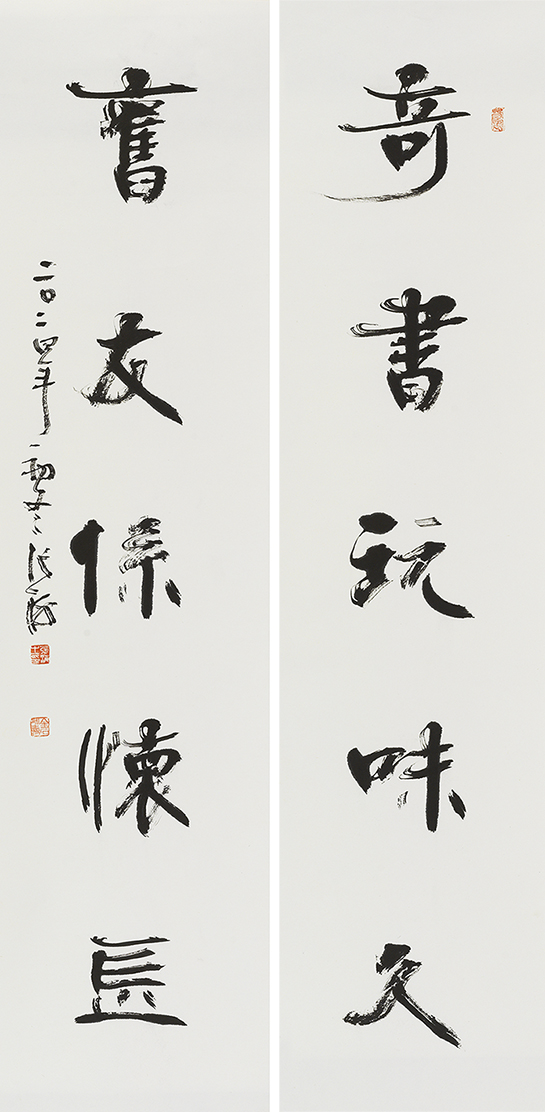 奇書玩味久
舊友係懷長
二〇二四年